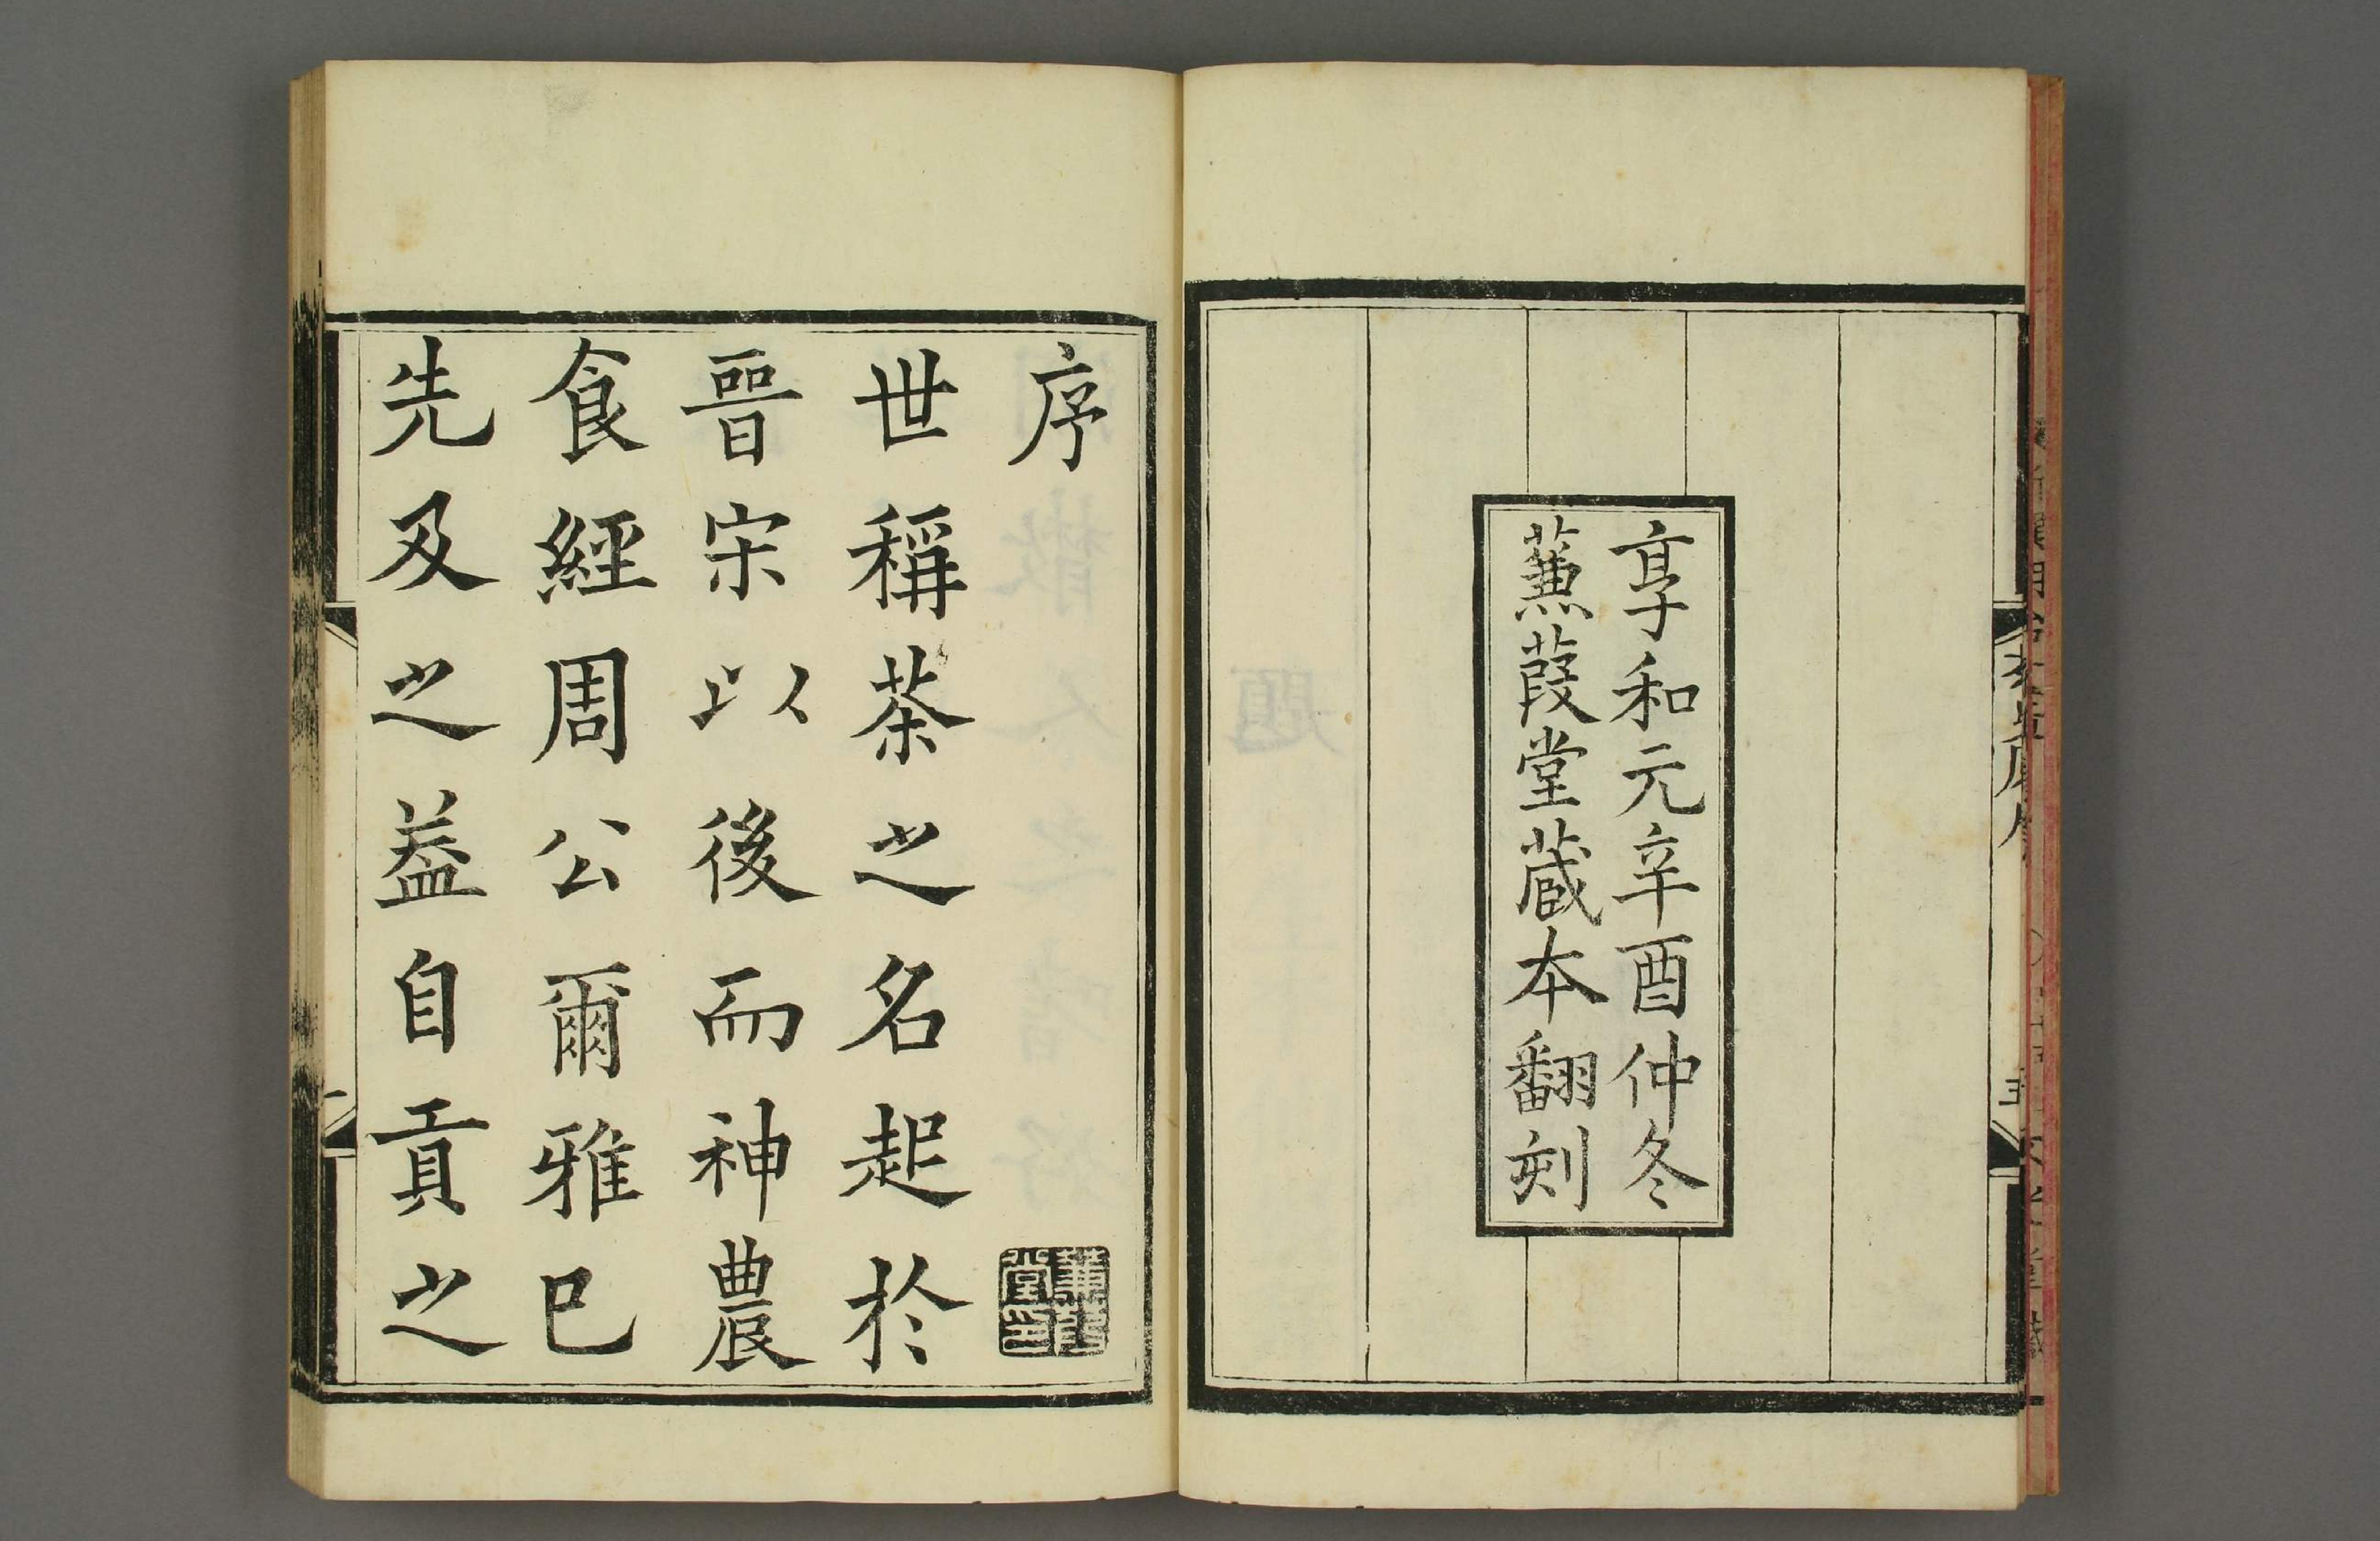 享和元辛酉仲冬
蒹葭堂蔵本翻刻
序
世稱茶之名起於
晉宋以後而神農
食經周公爾雅已
先及之益自貢之